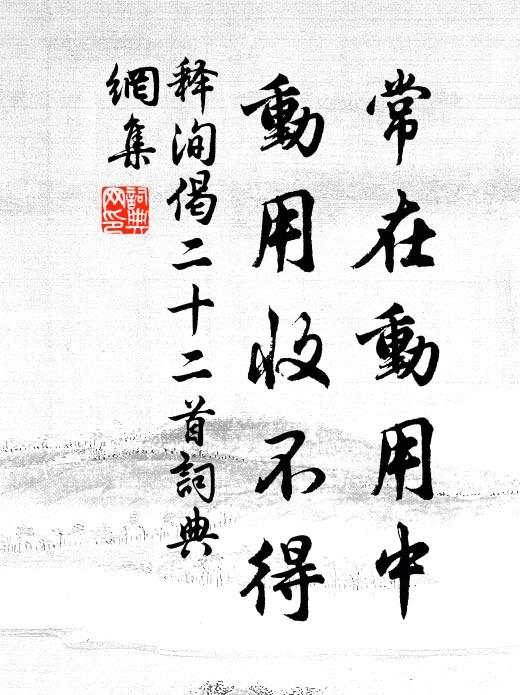 常在動用中
動用收不得
釋洵偈二十二首詞典
網集
詞典
网印